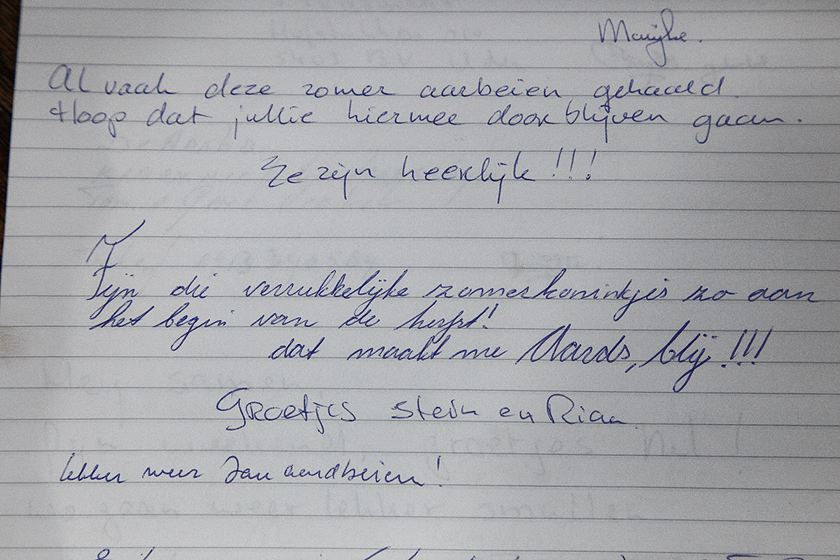 Marijke.
Al vaak deze zomer aarbeien gehaald.
Hoop dat jullie hiermee door blijven gaan.
Ze zijn heerlijk!!!
Fijn die verrukkelijke zomerkoninkjes zo aan
het begin van de herfst!
dat maakt me Aards, blij!!!
Groetjes Stein en Rian
lekker weer aardbeien!